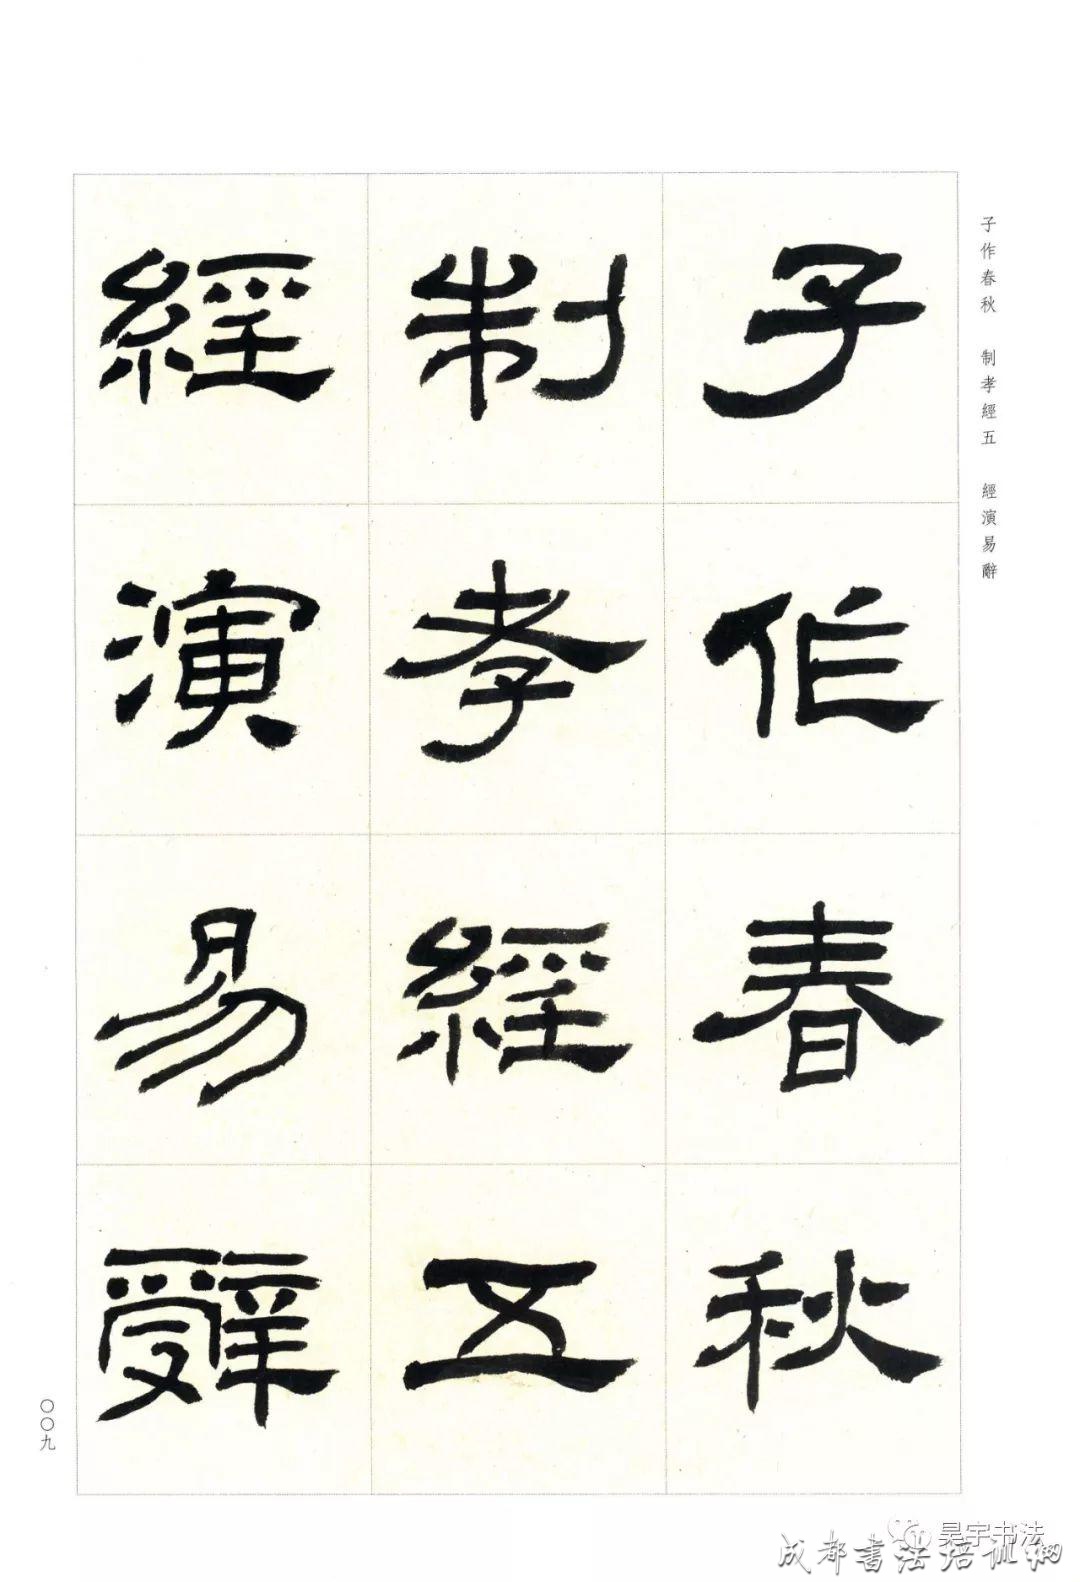 子作春秋 制孝經五 經演易辭
子作春秋
制孝經五
經演易辭
〇〇九
昊宇书法
成都书法培训网